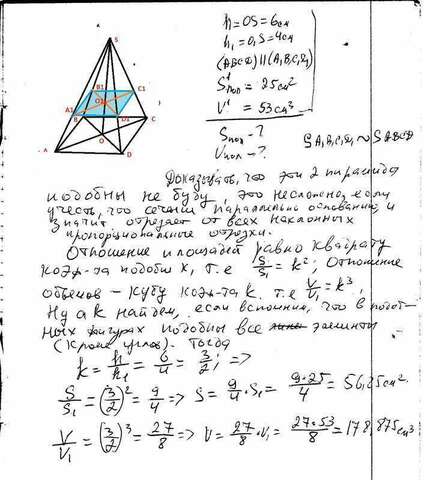 S
B1
C1
O1
A1
D1
B
C
O
A
D
h = OS = 6см
h₁ = O₁S = 4см
(ABCD) || (A₁B₁C₁D₁)
S¹пол = 25см²
V¹ = 53см³
Sпол - ?
Vпол - ?
SA₁B₁C₁D₁ ~ SABCD
Доказывать, что эти 2 пирамиды
подобны не буду, это несложно, если
учесть, что сечение параллельно основанию, и
значит отрезает от всех наклонных
пропорциональные отрезки.
Отношение площадей равно квадрату
коэф-та подобия, т.е S/S₁ = k²; Отношение
объемов - кубу коэф-та k. т.е V/V₁ = k³,
Ну а k найдем, если вспомним, что в подоб-
ных фигурах подобны все элементы
(кроме углов). Тогда
k = h/h₁ = 6/4 = 3/2; =>
S/S₁ = (3/2)² = 9/4 => S = 9/4 · S₁ = 9·25/4 = 56,25см².
V/V₁ = (3/2)³ = 27/8 => V = 27/8 · V₁ = 27·53/8 = 178,875см³